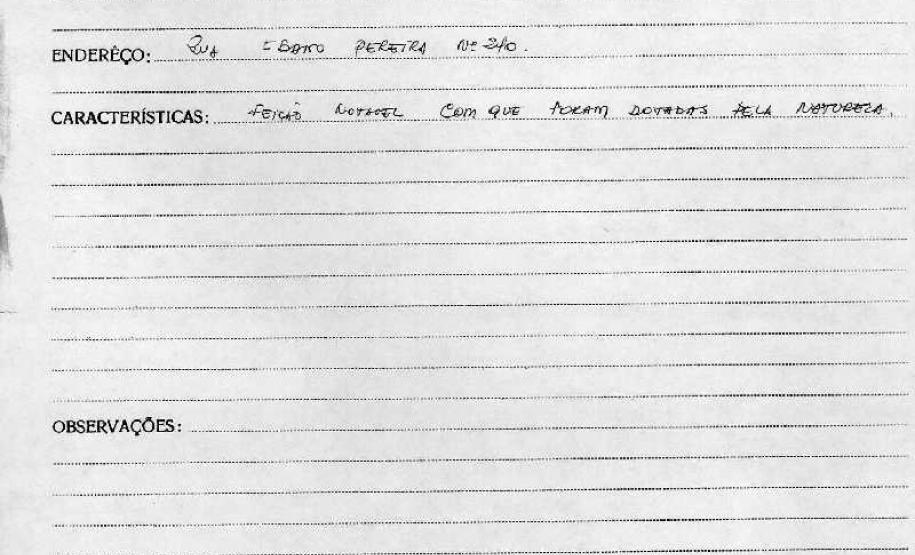 ENDERÊÇO: Rua Ebano PEREIRA Nº 240.
CARACTERÍSTICAS: FEIÇÃO NOTAVEL COM QUE FORAM DOTADAS PELA NATUREZA.
OBSERVAÇÕES: